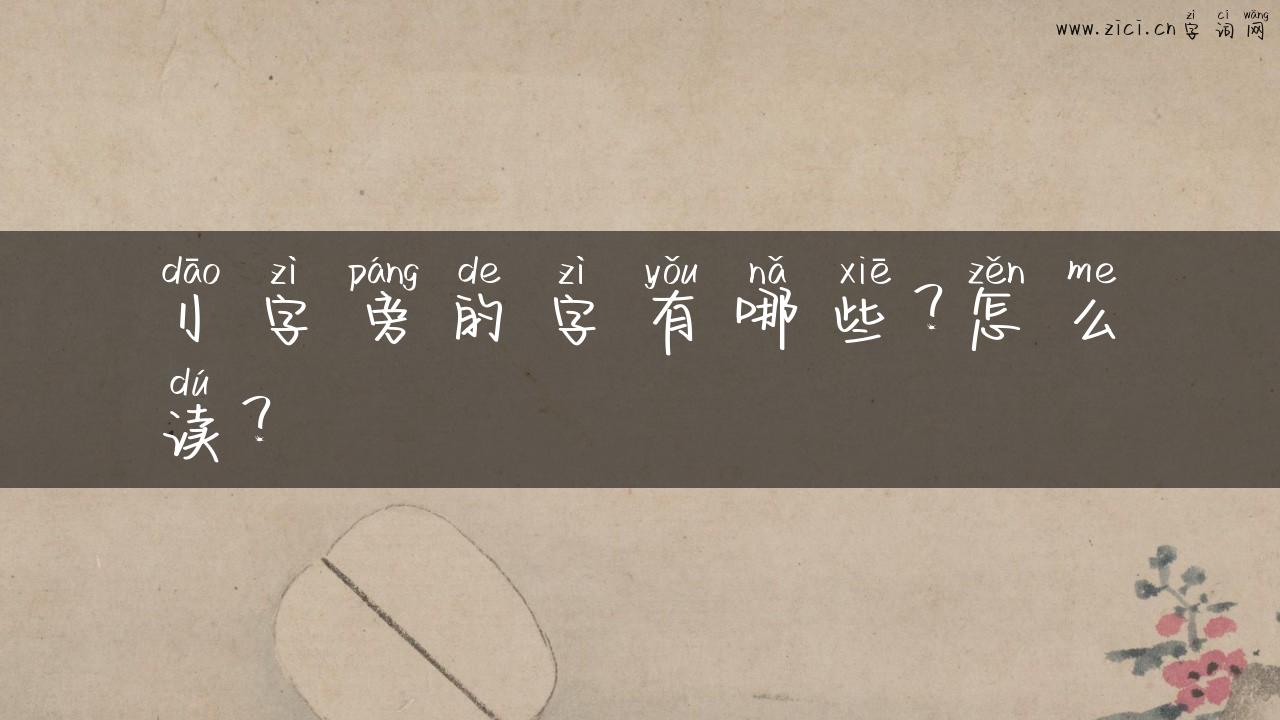 www.zici.cn字词网
zì cí wǎng
dāo zì páng de zì yǒu nǎ xiē zěn me
刂字旁的字有哪些?怎么
dú
读?